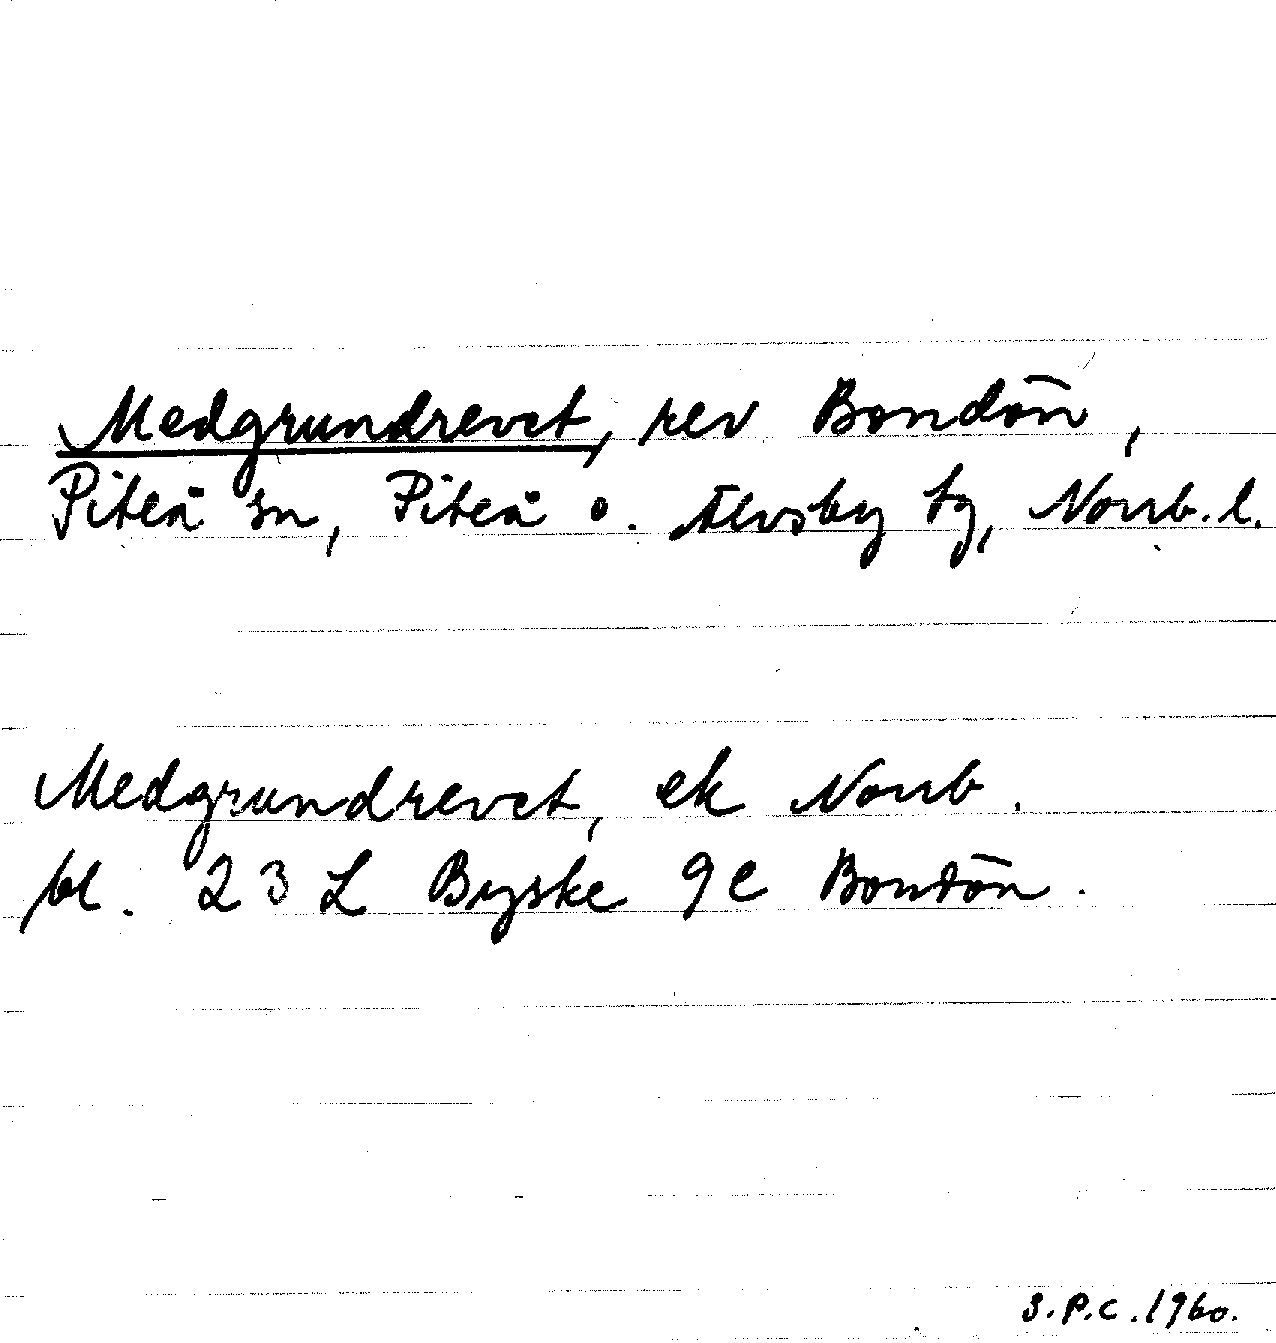 Medgrundrevet, rev Bondön,
Piteå sn, Piteå o. Älvsby tg, Norrb. l.
Medgrundrevet, ek Norrb.
bl. 23 L Byske 9e Bondön.
S.P.C. 1960.